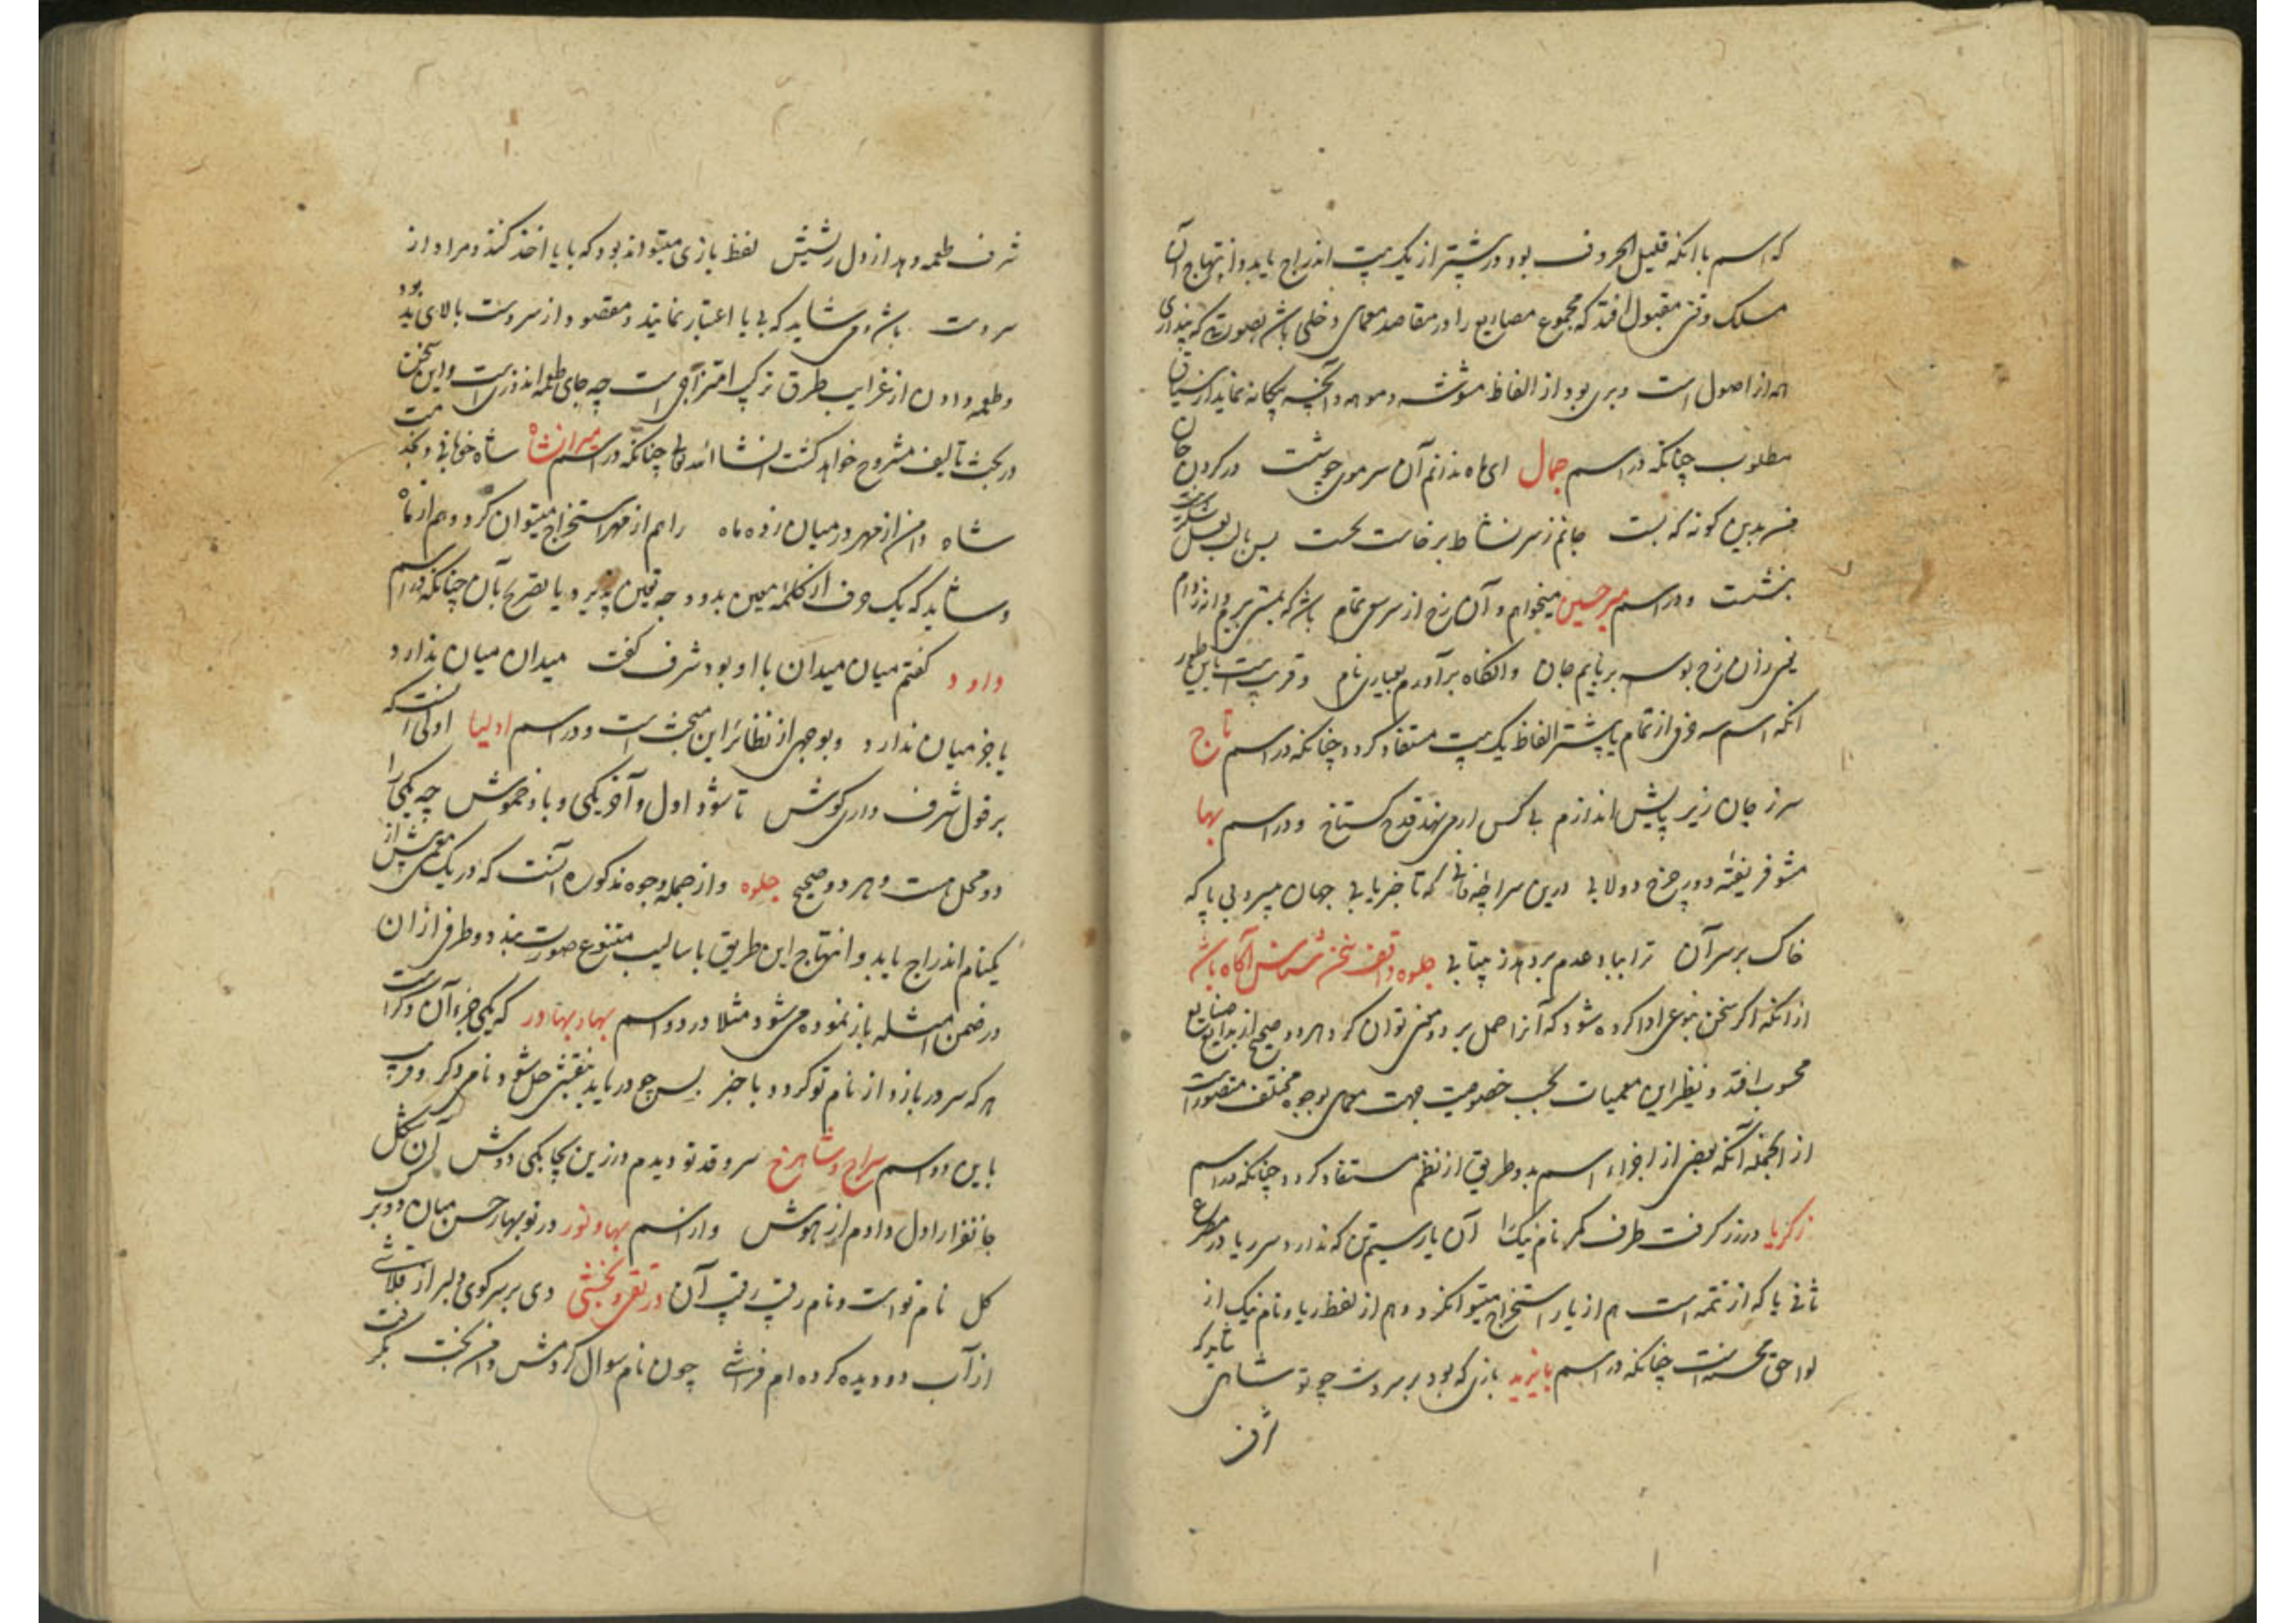 که اسم با آنکه قلیل الحروف بود در بیشتر از یک بیت اندراج یابد و انتهاج آن
مسلک وقتی مقبول افتد که مجموع مصاریع را در مقاصد معمای دخلی باشد بصورتی که پنداری
همه از اصول است و بری بود از الفاظ مشوشه و موهمه و آنچه بیگانه نماید از سیاق
مطلوب چنانکه در اسم جمال ای ماه ندانم آن سر موی چو شست در گردن جان
بدین گونه که بست جانم ز سر نشاط برخاست بحست پس بالب لعل
بنشست و در اسم میر حسین میخواهم و آن رخ از سر سوی تمام باشد که
یعنی زان رخ بوسه بربایم جان وانگاه برآورم بعیاری نام و قریبست باین طور
آنکه اسم سه حرفی از تمام یا بیشتر الفاظ یک بیت مستفاد گردد چنانکه در اسم تاج
سر ز جان زیر پایش اندازم هر کس ار می نهد قدح گستاخ و در اسم بها
مشو فریفته دور چرخ دولابی درین سراچه فانی که تا خبر یابی جهان سپرد بی پا که
خاک بر سر آن ترا بباد عدم بر دهد ز بیتابی جلوه واقف سخن شناس آگاه باش
از آنکه اگر سخن بنوعی ادا کرده شود که آنرا حمل بر دو معنی توان کرد و هر دو صحیح از بدایع صنایع
محسوب افتد و نظیر این معمیات بحسب خصوصیت جهت معمای بوجوه مختلف متصورست
از آنجمله آنکه بعضی از اجزاء اسم بدو طریق از نظم مستفاد گردد چنانکه در اسم
زکریا در زر گرفت طرف کمر نام نیک را آن یار سیمتن که ندارد سر ریا در مصرع
ثانی یا که از تتمه است هم از یار استخراج میتوان کرد و هم از لفظ ریا و نام نیک از
لواحق محسنه است چنانکه در اسم بایزید بازی که بود بر سر دست چو تو شاهی شاید که
از
شرف طعمه دهد از دل ریشش لفظ بازی میتواند بود که با یا اخذ کنند و مراد از
سر دست باش و می شاید که بی یا اعتبار نمایند و مقصود از سر دست بالای ید بود
و طعمه دادن از غرایب طرق ترکیب امتزاجی است چه جای طعمه اندرونست و این سخن
در بحث تالیف مشروح خواهد گشت انشاالله تعالی چنانکه در اسم میرانشاه شاه خوبانی و
شاه دامن از مهر در میان زده ماه را هم از مهر استخراج میتوان کرد و هم از ماه
و شاید که یک حرف از کلمه معین بدو وجه تعین پذیرد یا بصریح بآن چنانکه در اسم
داود گفتم میان میدان با او بود شرف گفت میدان میان ندارد
یا خر میان ندارد و بوجهی از نظائر این مبحث است و در اسم اولیا اولی آنست که
بر قول شرف داری گوش تا شود اول و آخر یکی و باد خموش چه یکی را
دو محل هست و هر دو صحیح جلوه و از جمله وجوه مذکوره آنست که در یک نظم بیش از
یکنام اندراج یابد و انتهاج این طریق باسالیب متنوع صورت بندد و طرفی از آن
در ضمن امثله باز نموده می شود مثلا در دو اسم بهاد بهادر که یکی جزء آن دگر است
هر که سر در بازد از نام تو گردد با خبر پس چو دریابد بتفتیش حل شود نامی دگر و قریب
باین دو اسم سراج و شاهرخ سرو قد تو دیدم در زین بچابکی دوش آن شکل
جانفزا را دل دادم از هوش و از اسم بهاو نور در نوبهار حسن میان دو بر
گل نام تو است و نام رقیب رقیب آن در تقی و بخشی دی بر سر کوی دلبر از قلاشی
از آب دو دیده کرده ام فراشی چون نام سوال کردمش دامن بخت بگرفت